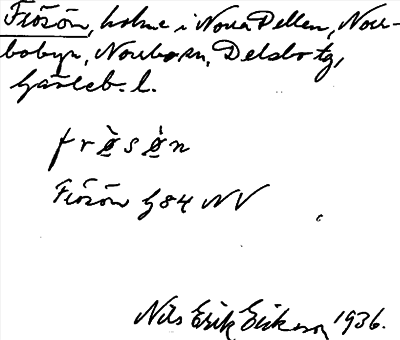 Frösön, holme i Norra Dellen, Norr-
bobyn, Norrbo sn, Delsbo tg,
Gävleb. l.
frø̀sø̀n
Frösön G84 NV
Nils Erik Erikson 1936.